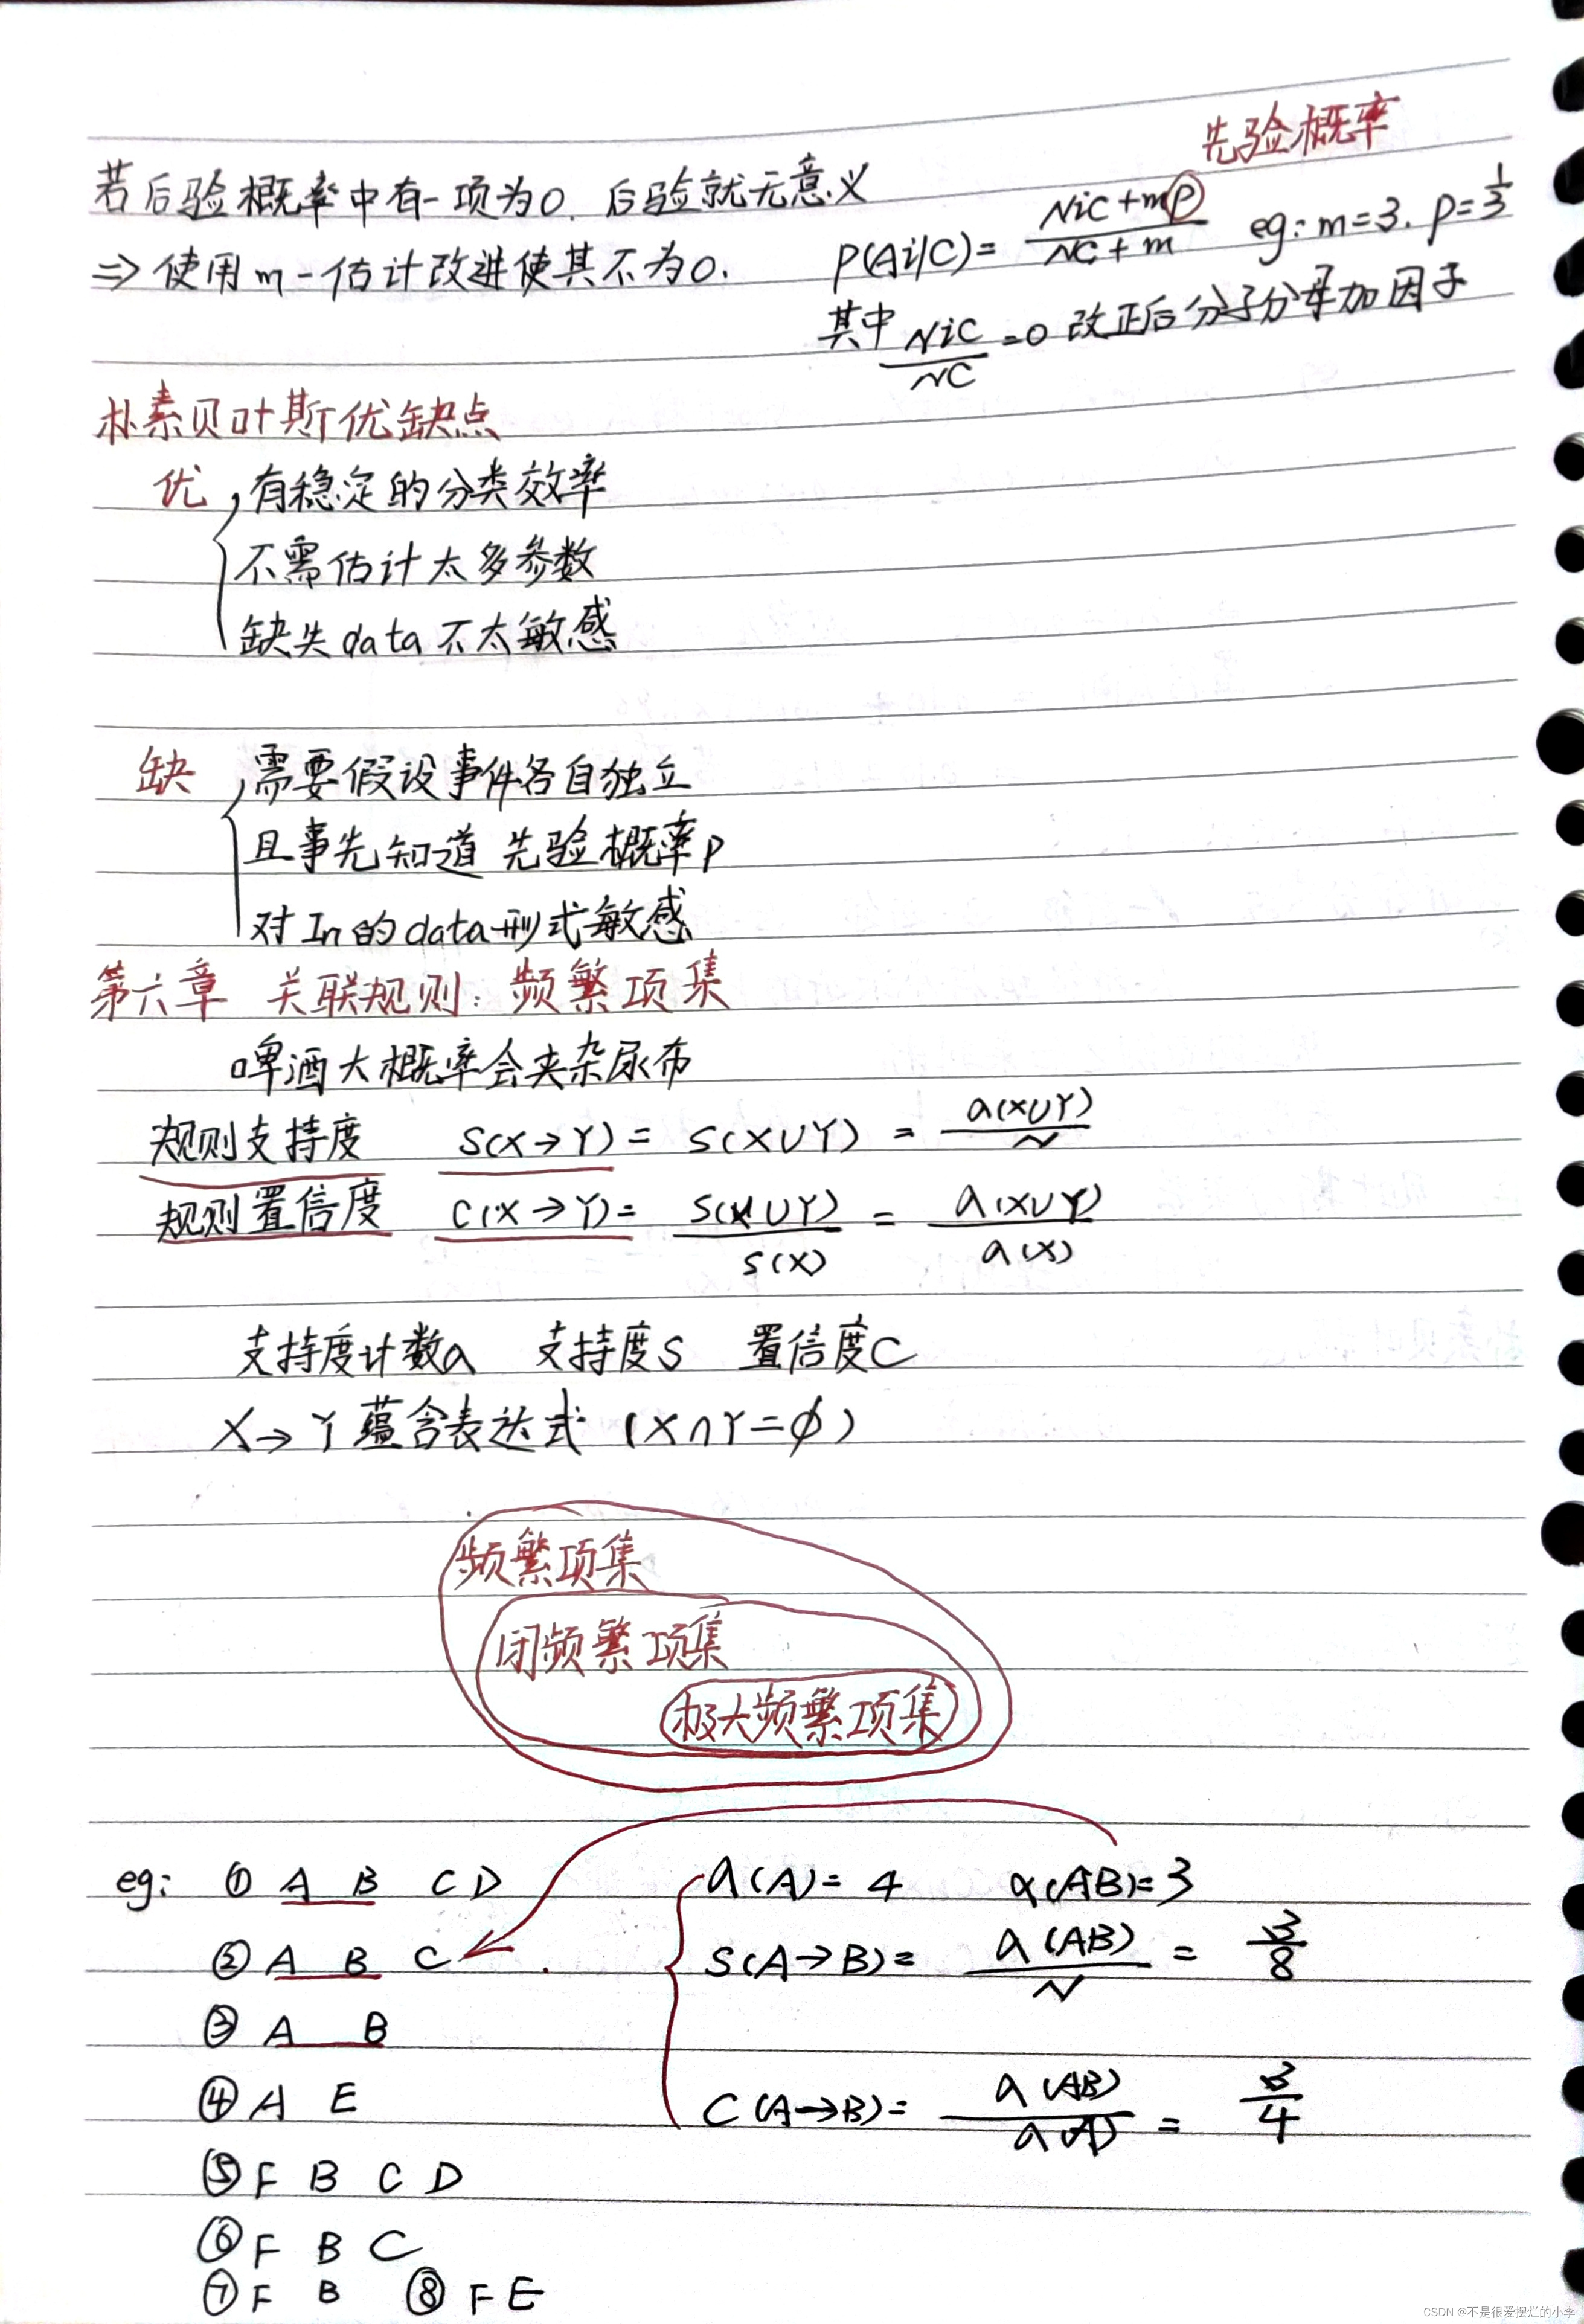 先验概率
若后验概率中有一项为0. 后验就无意义
⇒ 使用m-估计改进使其不为0.
P(Ai|C)= (Nic+mp)/(Nc+m) eg: m=3. p=1/3
其中 Nic/Nc =0 改正后分子分母加因子
朴素贝叶斯优缺点
优 有稳定的分类效率
不需估计太多参数
缺失data不太敏感
缺 需要假设事件各自独立
且事先知道 先验概率p
对In的data形式敏感
第六章 关联规则: 频繁项集
啤酒大概率会夹杂尿布
规则支持度 S(X→Y) = S(X∪Y) = a(X∪Y)/N
规则置信度 C(X→Y)= S(X∪Y)/S(X) = a(X∪Y)/a(X)
支持度计数a 支持度S 置信度C
X→Y蕴含表达式 (X∩Y=∅)
频繁项集
闭频繁项集
极大频繁项集
eg: ① A B C D
② A B C
③ A B
④ A E
⑤ F B C D
⑥ F B C
⑦ F B ⑧ F E
a(A)= 4 a(AB)=3
S(A→B)= a(AB)/N = 3/8
C(A→B)= a(AB)/a(A) = 3/4
CSDN @不是很爱摆烂的小李